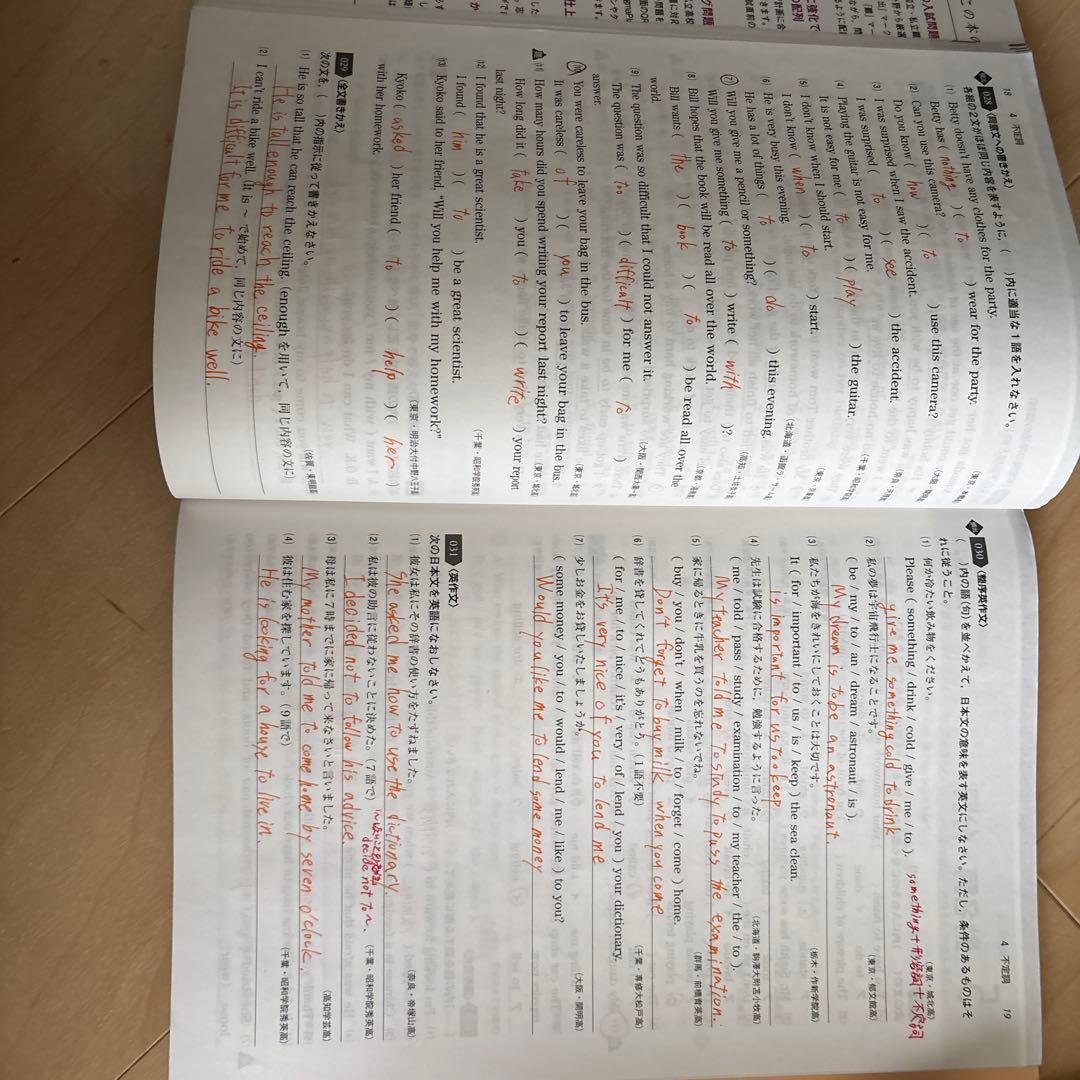 18 4 不定詞
028 〈同意文への書きかえ〉
各組の2文がほぼ同じ内容を表すように,( )内に適当な1語を入れなさい。
(1) Betty doesn't have any clothes for the party.
Betty has ( nothing ) ( to ) wear for the party.
(2) Can you use this camera?
Do you know ( how ) ( to ) use this camera?
(3) I was surprised when I saw the accident.
I was surprised ( to ) ( see ) the accident.
(4) Playing the guitar is not easy for me.
It is not easy for me ( to ) ( play ) the guitar.
(5) I don't know when I should start.
I don't know ( when ) ( to ) start.
(6) He is very busy this evening.
He has a lot of things ( to ) ( do ) this evening.
(7) Will you give me a pencil or something?
Will you give me something ( to ) write ( with )?
(8) Bill hopes that the book will be read all over the world.
Bill wants ( the ) ( book ) ( to ) be read all over the
world.
(9) The question was so difficult that I could not answer it.
The question was ( too ) ( difficult ) for me ( to )
answer.
(10) You were careless to leave your bag in the bus.
It was careless ( of ) ( you ) to leave your bag in the bus.
(11) How many hours did you spend writing your report last night?
How long did it ( take ) you ( to ) ( write ) your report
last night?
(12) I found that he is a great scientist.
I found ( him ) ( to ) be a great scientist.
(千葉・昭和学院秀英高)
(13) Kyoko said to her friend, "Will you help me with my homework?"
Kyoko ( asked ) her friend ( to ) ( help ) ( her )
with her homework.
029 〈全文書きかえ〉
次の文を,( )内の指示に従って書きかえなさい。
(1) He is so tall that he can reach the ceiling. (enough を用いて,同じ内容の文に)
He is tall enough to reach the ceiling.
(2) I can't ride a bike well. (It is ~ で始めて,同じ内容の文に)
It is difficult for me to ride a bike well.
4 不定詞 19
030 〈整序英作文〉
( )内の語(句)を並べかえて,日本文の意味を表す英文にしなさい。ただし,条件のあるものはそ
れに従うこと。
(1) 何か冷たい飲み物をください。
(東京・城北高)
Please ( something / drink / cold / give / me / to ).
something+形容詞+不定詞
give me something cold to drink
(2) 私の夢は宇宙飛行士になることです。
(東京・郁文館高)
( be / my / to / an / dream / astronaut / is ).
My dream is to be an astronaut.
(3) 私たちが海をきれいにしておくことは大切です。
(栃木・作新学院高)
It ( for / important / to / us / is / keep ) the sea clean.
is important for us to keep
(4) 先生は試験に合格するために,勉強するように言った。
(北海道・駒澤大附苫小牧高)
( me / told / pass / study / examination / to / my teacher / the / to ).
My teacher told me to study to pass the examination.
(5) 家に帰るときに牛乳を買うのを忘れないでね。
(群馬・前橋育英高)
( buy / you / don't / when / milk / to / forget / come ) home.
Don't forget to buy milk when you come
(6) 辞書を貸してくれてどうもありがとう。(1語不要)
(千葉・専修大松戸高)
( for / me / to / nice / it's / very / of / lend / you ) your dictionary.
It's very nice of you to lend me
(7) 少しお金をお貸しいたしましょうか。
(大阪・開明高)
( some money / you / to / would / lend / me / like ) to you?
Would you like me to lend some money
031 〈英作文〉
次の日本文を英語になおしなさい。
(1) 彼女は私にその辞書の使い方をたずねました。
(奈良・帝塚山高)
She asked me how to use the dictionary.
(2) 私は彼の助言に従わないことに決めた。(7語で)
decide not to~.
(千葉・昭和学院秀英高)
I decided not to follow his advice.
(3) 母は私に7時までに家に帰って来なさいと言いました。
(高知学芸高)
My mother told me to come home by seven o'clock.
(4) 彼は住む家を探しています。(9語で)
(千葉・昭和学院秀英高)
He is looking for a house to live in.